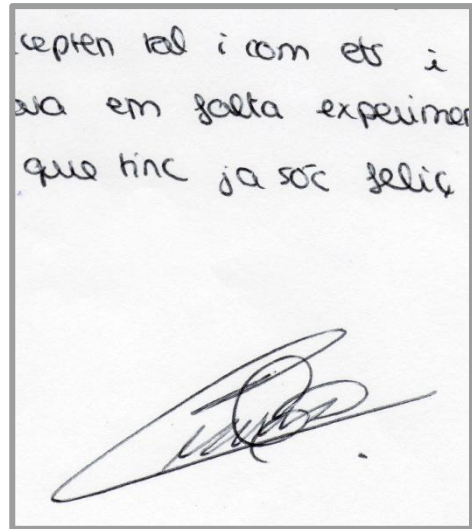 cepten tal i com ets i
ava em falta experimen
que tinc ja sóc feliç